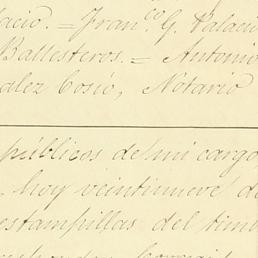 lacio. = Fran.co G. Palacio
Ballesteros. = Antonio
alez Cosío, Notario
públicos de mi cargo
hoy veintinueve de
estampillas del timb